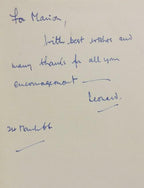 For Marion,
With best wishes and
many thanks for all your
encouragement —
Leonard.
1st March 66